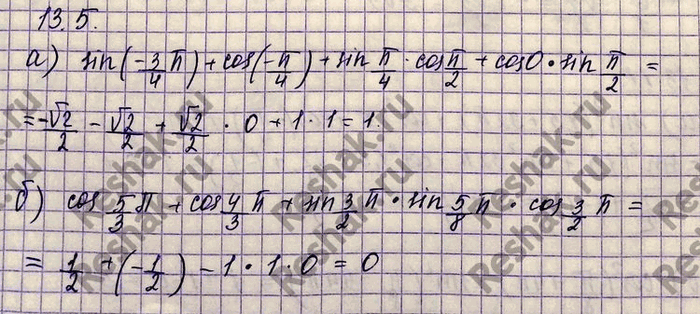 13.5.
а) sin(-3/4 π) + cos(-π/4) + sin π/4 · cos π/2 + cos0 · sin π/2 =
= -√2/2 - √2/2 + √2/2 · 0 + 1 · 1 = 1
б) cos 5/3 π + cos 4/3 π + sin 3/2 π · sin 5/8 π · cos 3/2 π =
= 1/2 + (-1/2) - 1 · 1 · 0 = 0
Reshak.ru